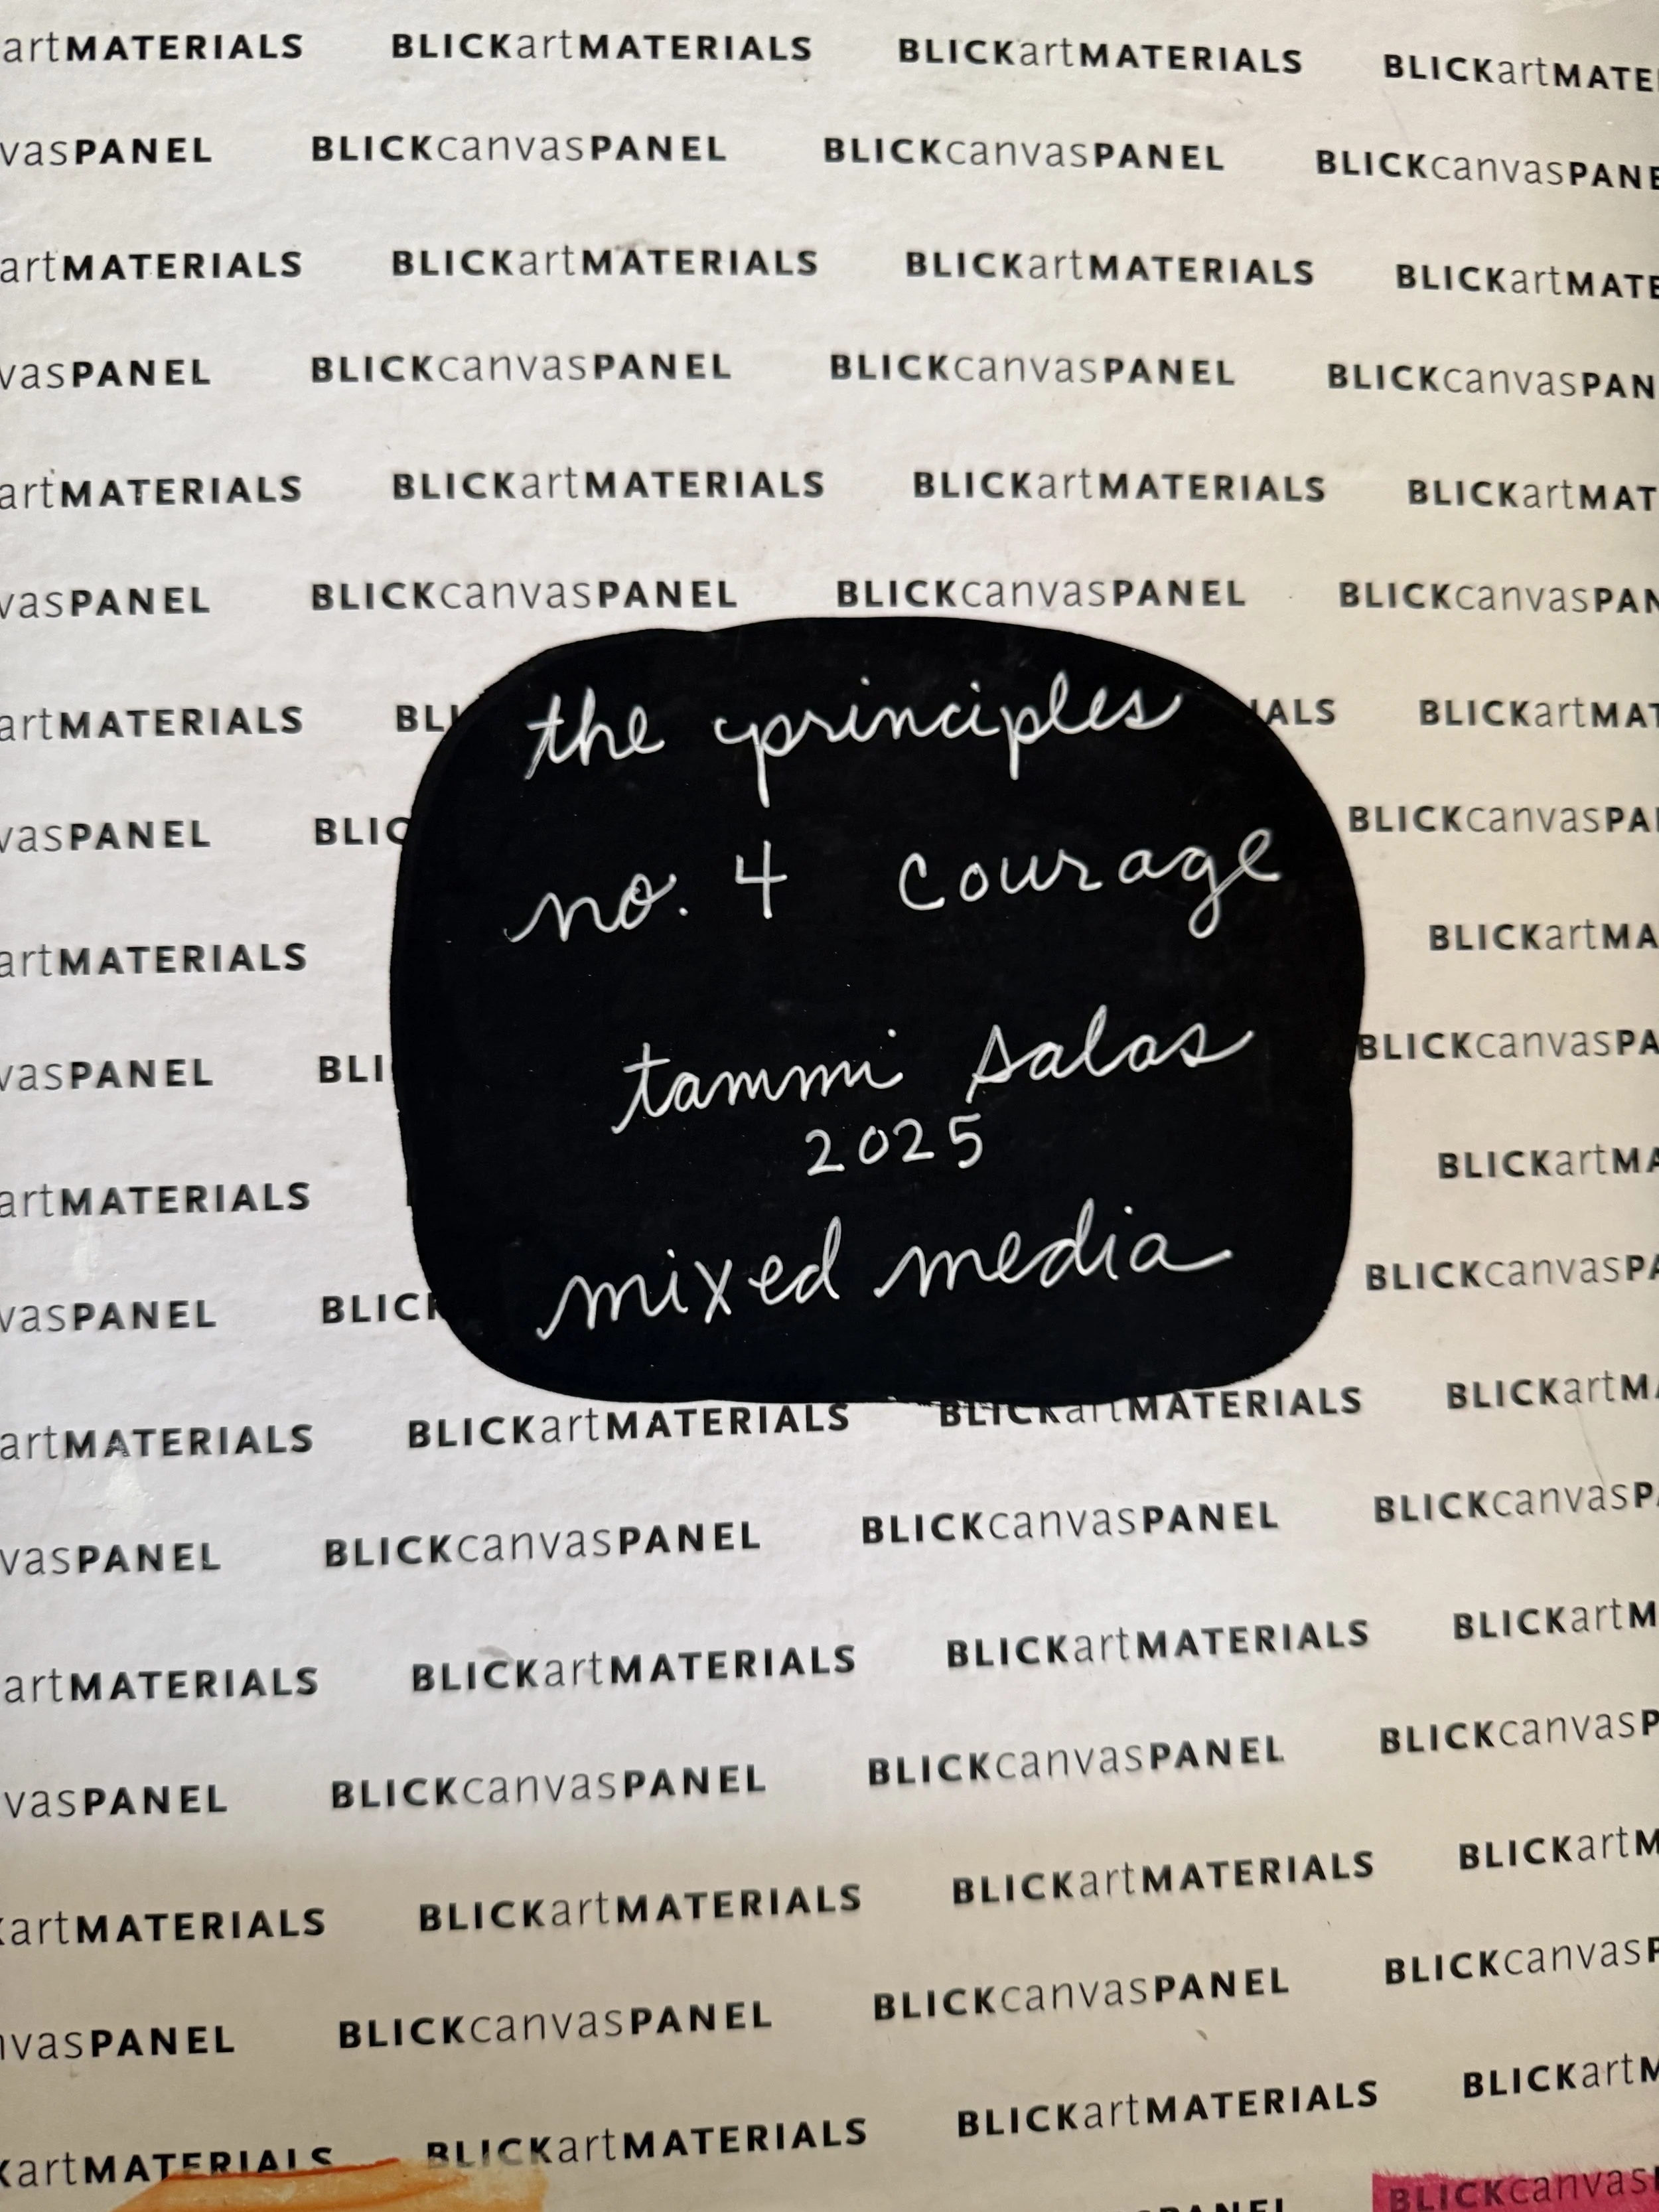 artMATERIALS BLICKartMATERIALS BLICKartMATERIALS BLICKartMATE
vasPANEL BLICKcanvasPANEL BLICKcanvasPANEL BLICKcanvasPANE
artMATERIALS BLICKartMATERIALS BLICKartMATERIALS BLICKartMATE
vasPANEL BLICKcanvasPANEL BLICKcanvasPANEL BLICKcanvasPAN
artMATERIALS BLICKartMATERIALS BLICKartMATERIALS BLICKartMAT
vasPANEL BLICKcanvasPANEL BLICKcanvasPANEL BLICKcanvasPAN
artMATERIALS BLI IALS BLICKartMAT
the principles
vasPANEL BLIC BLICKcanvasPA
no. 4 courage
artMATERIALS BLICKartMA
vasPANEL BLI BLICKcanvasPA
tammi salas
2025
artMATERIALS BLICKartMA
mixed media
vasPANEL BLICK BLICKcanvasPA
artMATERIALS BLICKartMATERIALS BLICKartMATERIALS BLICKartMA
vasPANEL BLICKcanvasPANEL BLICKcanvasPANEL BLICKcanvasPA
artMATERIALS BLICKartMATERIALS BLICKartMATERIALS BLICKartM
vasPANEL BLICKcanvasPANEL BLICKcanvasPANEL BLICKcanvasP
artMATERIALS BLICKartMATERIALS BLICKartMATERIALS BLICKartM
vasPANEL BLICKcanvasPANEL BLICKcanvasPANEL BLICKcanvasP
KartMATERIALS BLICKartMATERIALS BLICKartMATERIALS BLICKartM
PANEL BLICKcanvas